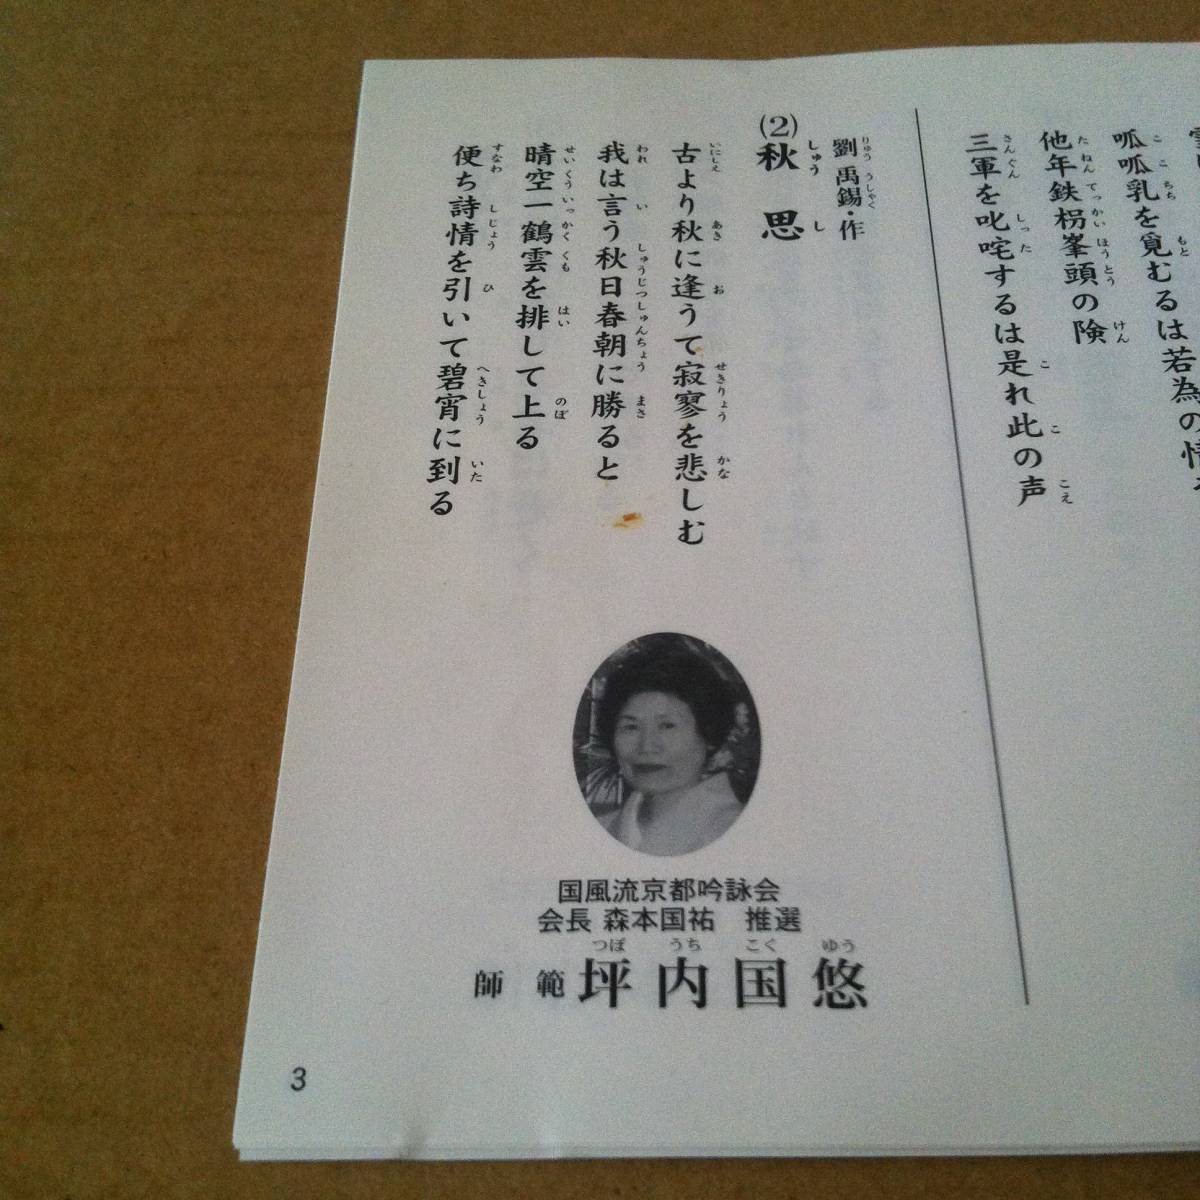 呱呱乳を覓むるは若為の情
他年鉄枴峯頭の険
三軍を叱咤するは是れ此の声
劉禹錫・作
(2)秋思
古より秋に逢うて寂寥を悲しむ
我は言う秋日春朝に勝ると
晴空一鶴雲を排して上る
便ち詩情を引いて碧宵に到る
国風流京都吟詠会
会長 森本国祐 推選
師範 坪内国悠
3